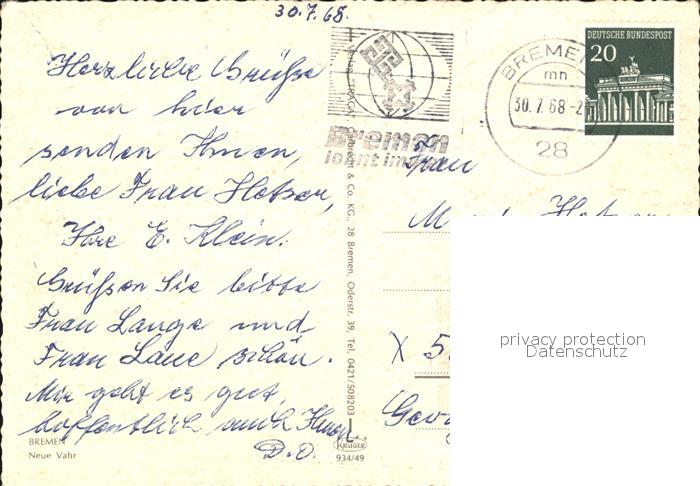 30.7.68.
Herzliche Grüße
von hier
senden Ihnen,
liebe Frau Hetzer,
Ihre E. Klein.
Grüßen Sie bitte
Frau Lange und
Frau Laue schön.
Mir geht es gut,
hoffentlich auch Ihnen.
D.O.
BREMEN
Neue Vahr
& Co. KG., 28 Bremen, Oderstr. 39, Tel. 0421/508203
KRÜGER
934/49
Bremen
lohnt immer
BREMEN
mn
30.7.68-2
28
DEUTSCHE BUNDESPOST
20
Frau
X 5
privacy protection
Datenschutz